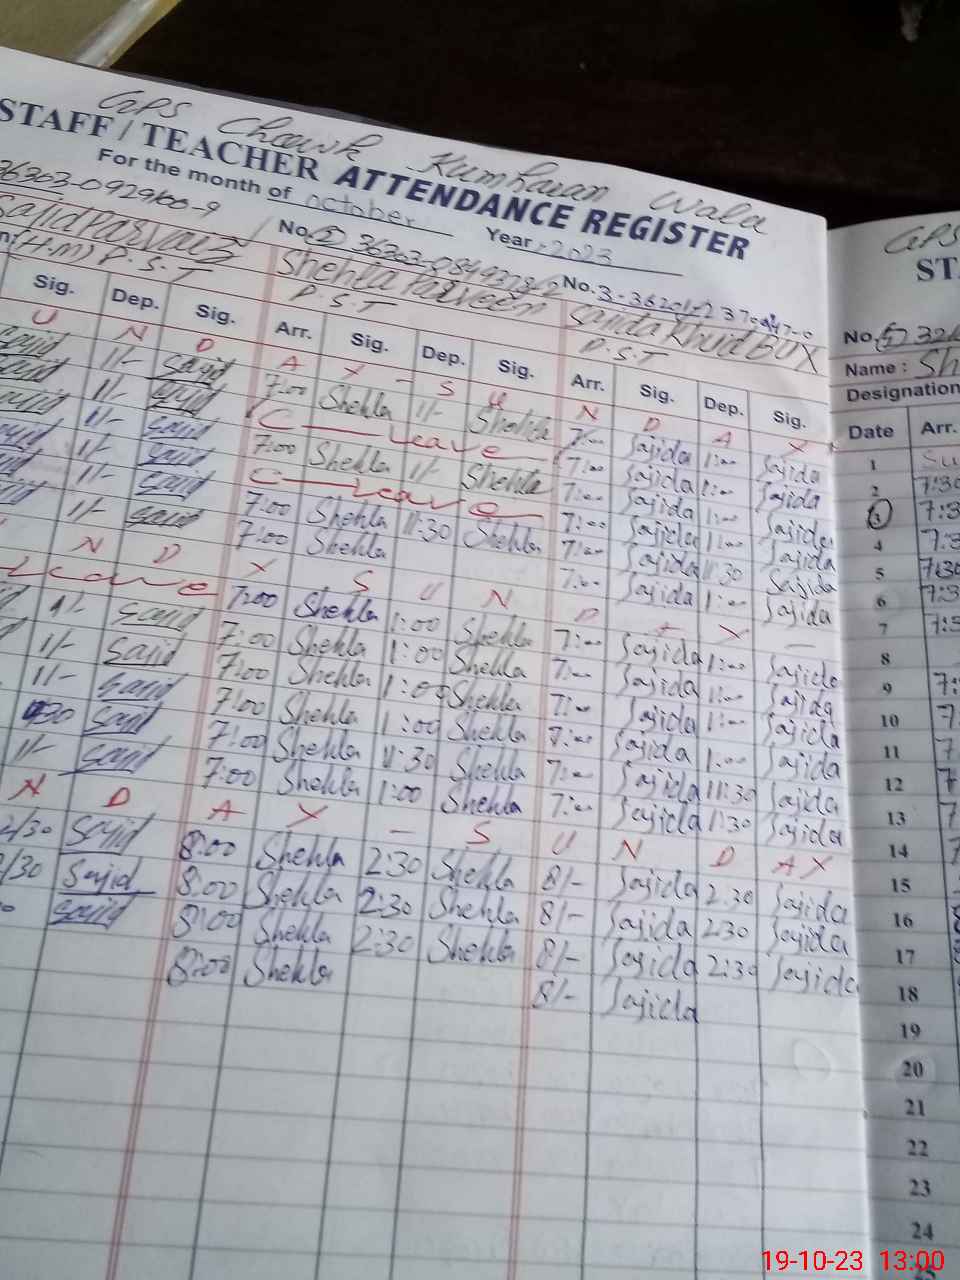 GPS Chowk Kumharan Wala
STAFF / TEACHER ATTENDANCE REGISTER
For the month of october Year 2023
36303-0929160-9 No. 2 No. 3-
Sajid Parvaiz Shehla Parveen Sajida Khuda Bux
(H.M) P.S.T P.S.T P.S.T
Sig. Dep. Sig. Arr. Sig. Dep. Sig. Arr. Sig. Dep. Sig.
U N D A Y - S U N D A Y
Sajid 1/- Sajid 7:00 Shehla 1/- Shehla 7:00 Sajida 1:00 Sajida
Sajid 1/- Sajid C Leave 7:00 Sajida 1:00 Sajida
Sajid 1/- Sajid 7:00 Shehla 1/- Shehla 7:00 Sajida 1:00 Sajida
Sajid 1/- Sajid C Leave 7:00 Sajida 1:00 Sajida
1/- Sajid 7:00 Shehla 11:30 Shehla 7:00 Sajida 11:30 Sajida
1/- Sajid 7:00 Shehla 7:00 Sajida 1:00 Sajida
N D Y S U N D Y —
Leave 7:00 Shehla 1:00 Shehla 7:00 Sajida 1:00 Sajida
1/- Sajid 7:00 Shehla 1:00 Shehla 7:00 Sajida 1:00 Sajida
1/- Sajid 7:00 Shehla 1:00 Shehla 7:00 Sajida 1:00 Sajida
1/- Sajid 7:00 Shehla 1:00 Shehla 7:00 Sajida 1:00 Sajida
30 Sajid 7:00 Shehla 11:30 Shehla 7:00 Sajida 11:30 Sajida
1/- Sajid 7:00 Shehla 1:00 Shehla 7:00 Sajida 1:30 Sajida
N D A Y - S U N D A Y
2/30 Sajid 8:00 Shehla 2:30 Shehla 8/- Sajida 2:30 Sajida
/30 Sajid 8:00 Shehla 2:30 Shehla 8/- Sajida 2:30 Sajida
Sajid 8:00 Shehla 2:30 Shehla 8/- Sajida 2:30 Sajida
8:00 Shehla 8/- Sajida
GPS
ST
No. 5
Name : Sh
Designation
Date Arr.
1 Su
2 7:30
3 7:3
4 7:3
5 7:30
6 7:3
7 7:3
8
9 7:
10 7
11 7
12 7
13 7
14 7
15
16
17
18
19
20
21
22
23
24
19-10-23 13:00